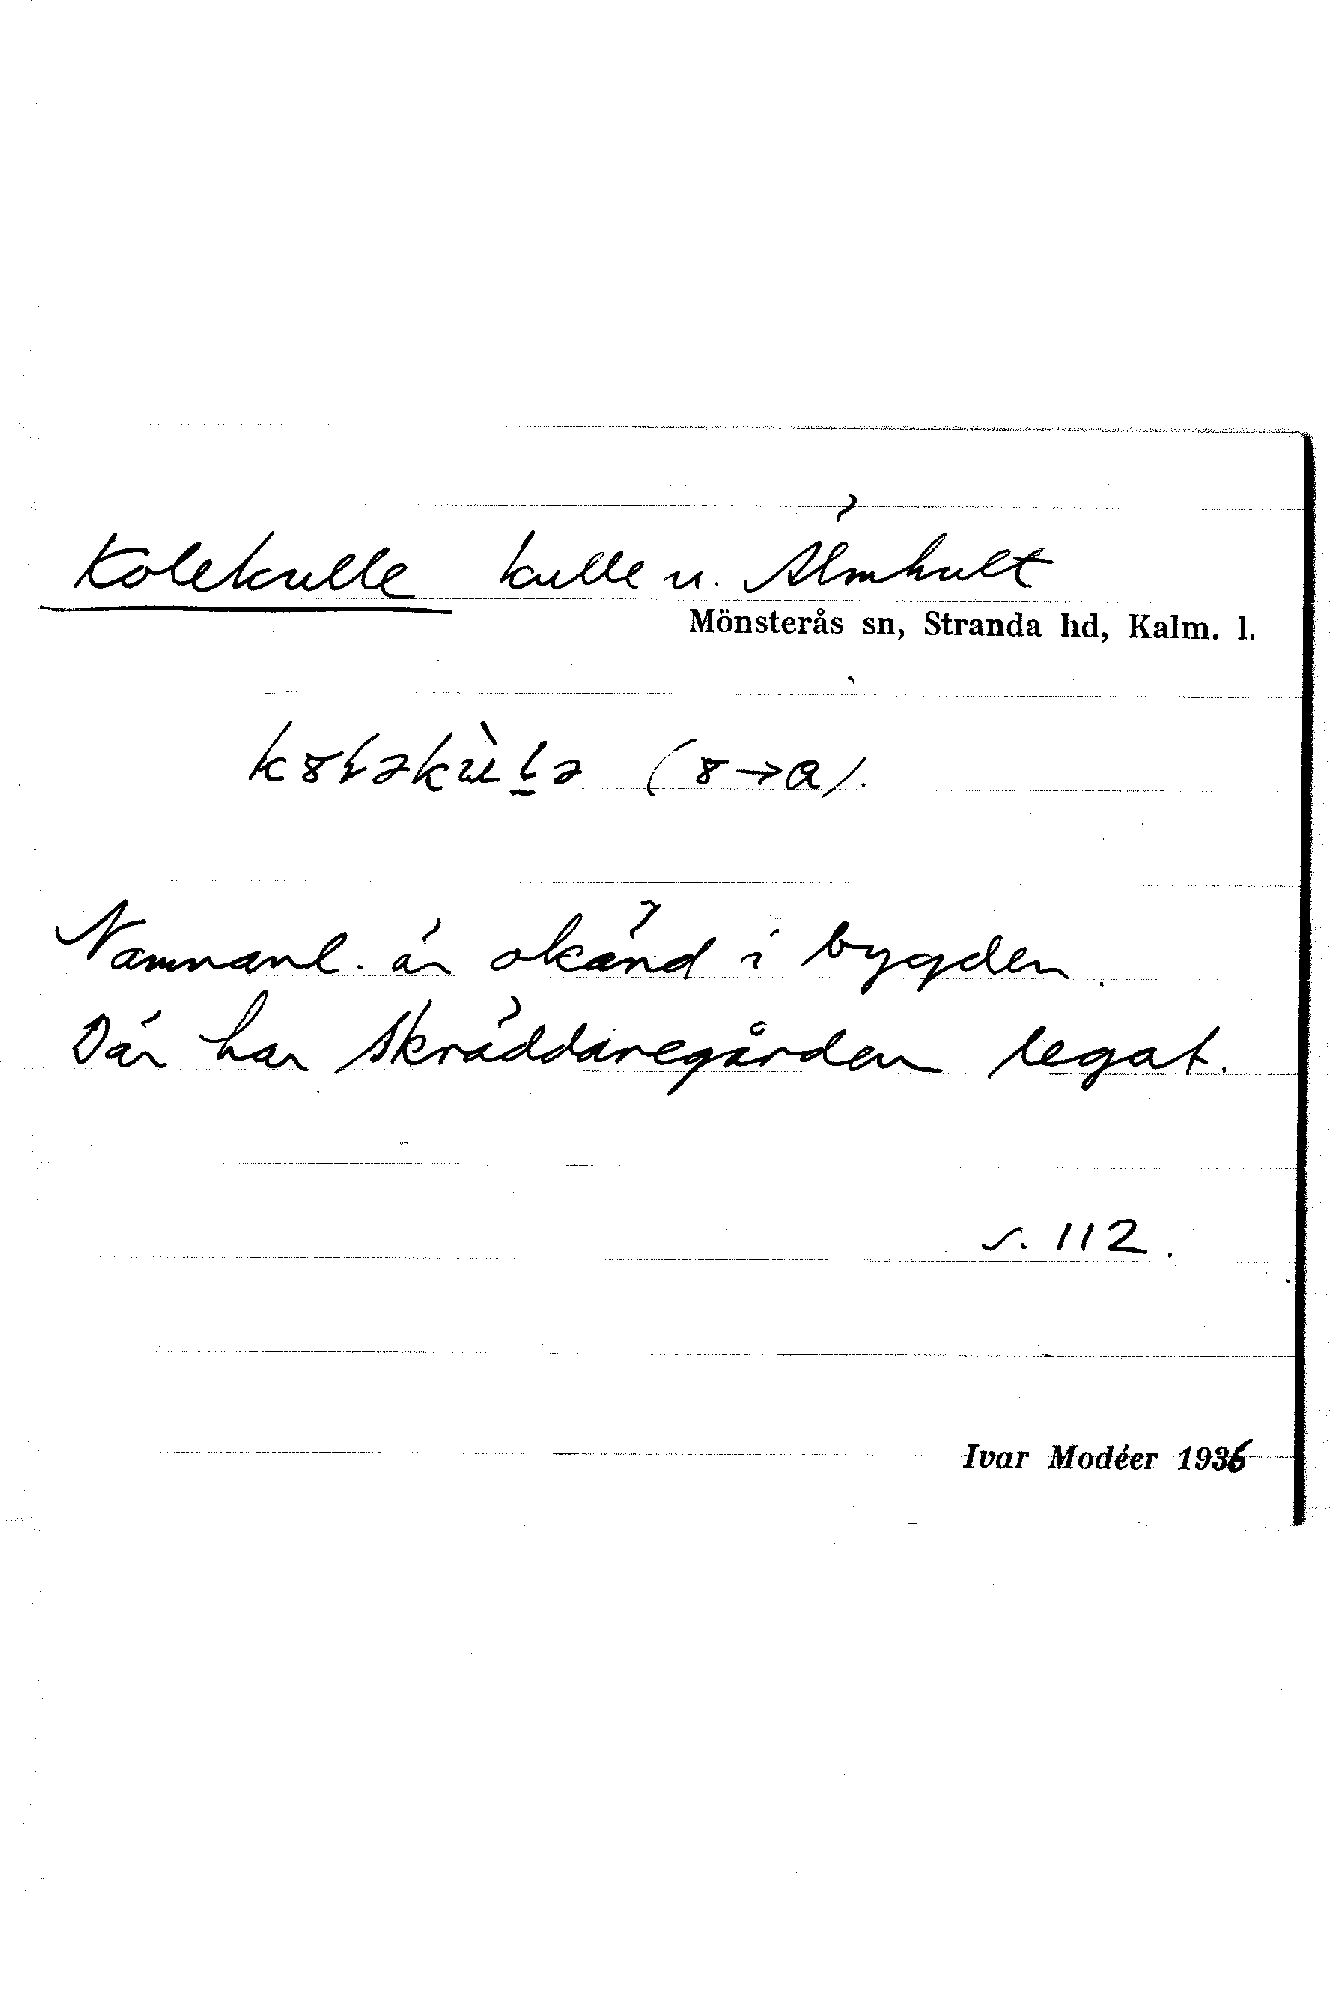 Kolekulle kulle u. Älmhult
Mönsterås sn, Stranda hd, Kalm. l.
(8→a).
Namnanl. är okänd i bygden.
Där har Skräddaregården legat.
s. 112.
Ivar Modéer 1936